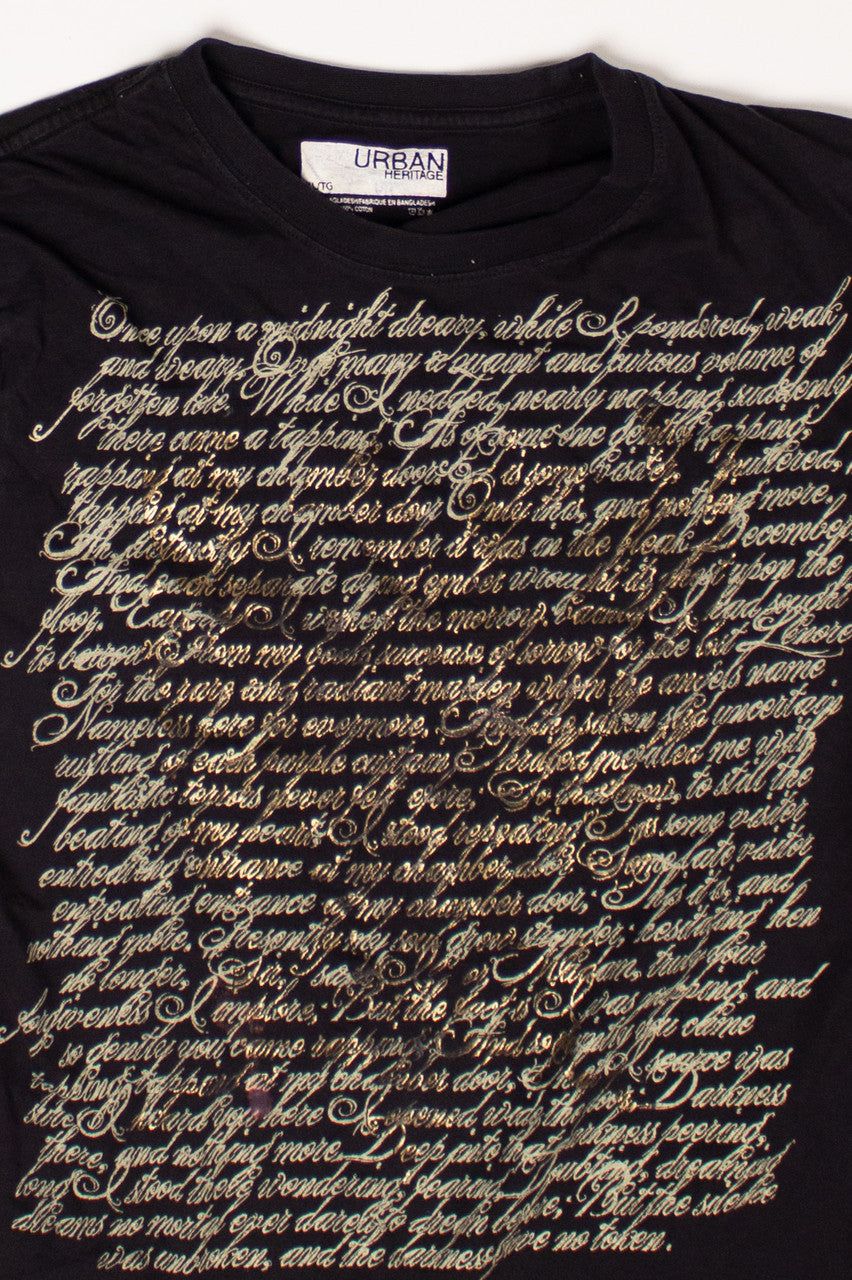 URBAN
HERITAGE
/TG
GLADESH/FABRIQUE EN BANGLADESH
COTON
Once upon a midnight dreary, while I pondered, weak
and weary, Over many a quaint and curious volume of
forgotten lore, While I nodded, nearly napping, suddenly
there came a tapping, As of some one gently rapping,
rapping at my chamber door. is some visiter, muttered,
tapping at my chamber door Only this, and nothing more.
Ah, distinctly I remember it was in the bleak December
And each separate dying ember wrought its ghost upon the
floor. Eagerly I wished the morrow, vainly I had sought
to borrow From my books surcease of sorrow for the lost Lenore
For the rare and radiant maiden whom the angels name
Nameless here for evermore. And the silken sad uncertain
rustling of each purple curtain Thrilled me filled me with
fantastic terrors never felt before, So that now, to still the
beating of my heart I stood repeating 'Tis some visiter
entreating entrance at my chamber door Some late visiter
entreating entrance at my chamber door, This it is, and
nothing more. Presently my soul grew stronger, hesitating hen
no longer, Sir, said I, or Madam, truly your
forgiveness I implore, But the fact is I was napping, and
so gently you came rapping, And so faintly you came
tapping, tapping at my chamber door, That I scarce was
sure I heard you here I opened wide the door, Darkness
there, and nothing more. Deep into that darkness peering,
long I stood there wondering, fearing, Doubting, dreaming
dreams no mortal ever dared to dream before, But the silence
was unbroken, and the darkness gave no token.